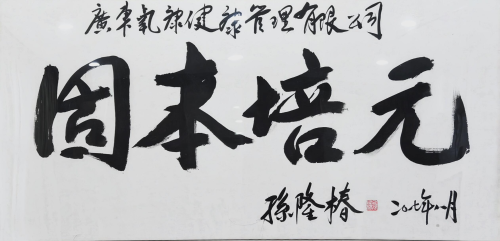 廣東氫康健康管理有限公司
固本培元
孫隆椿 二〇一七年八月